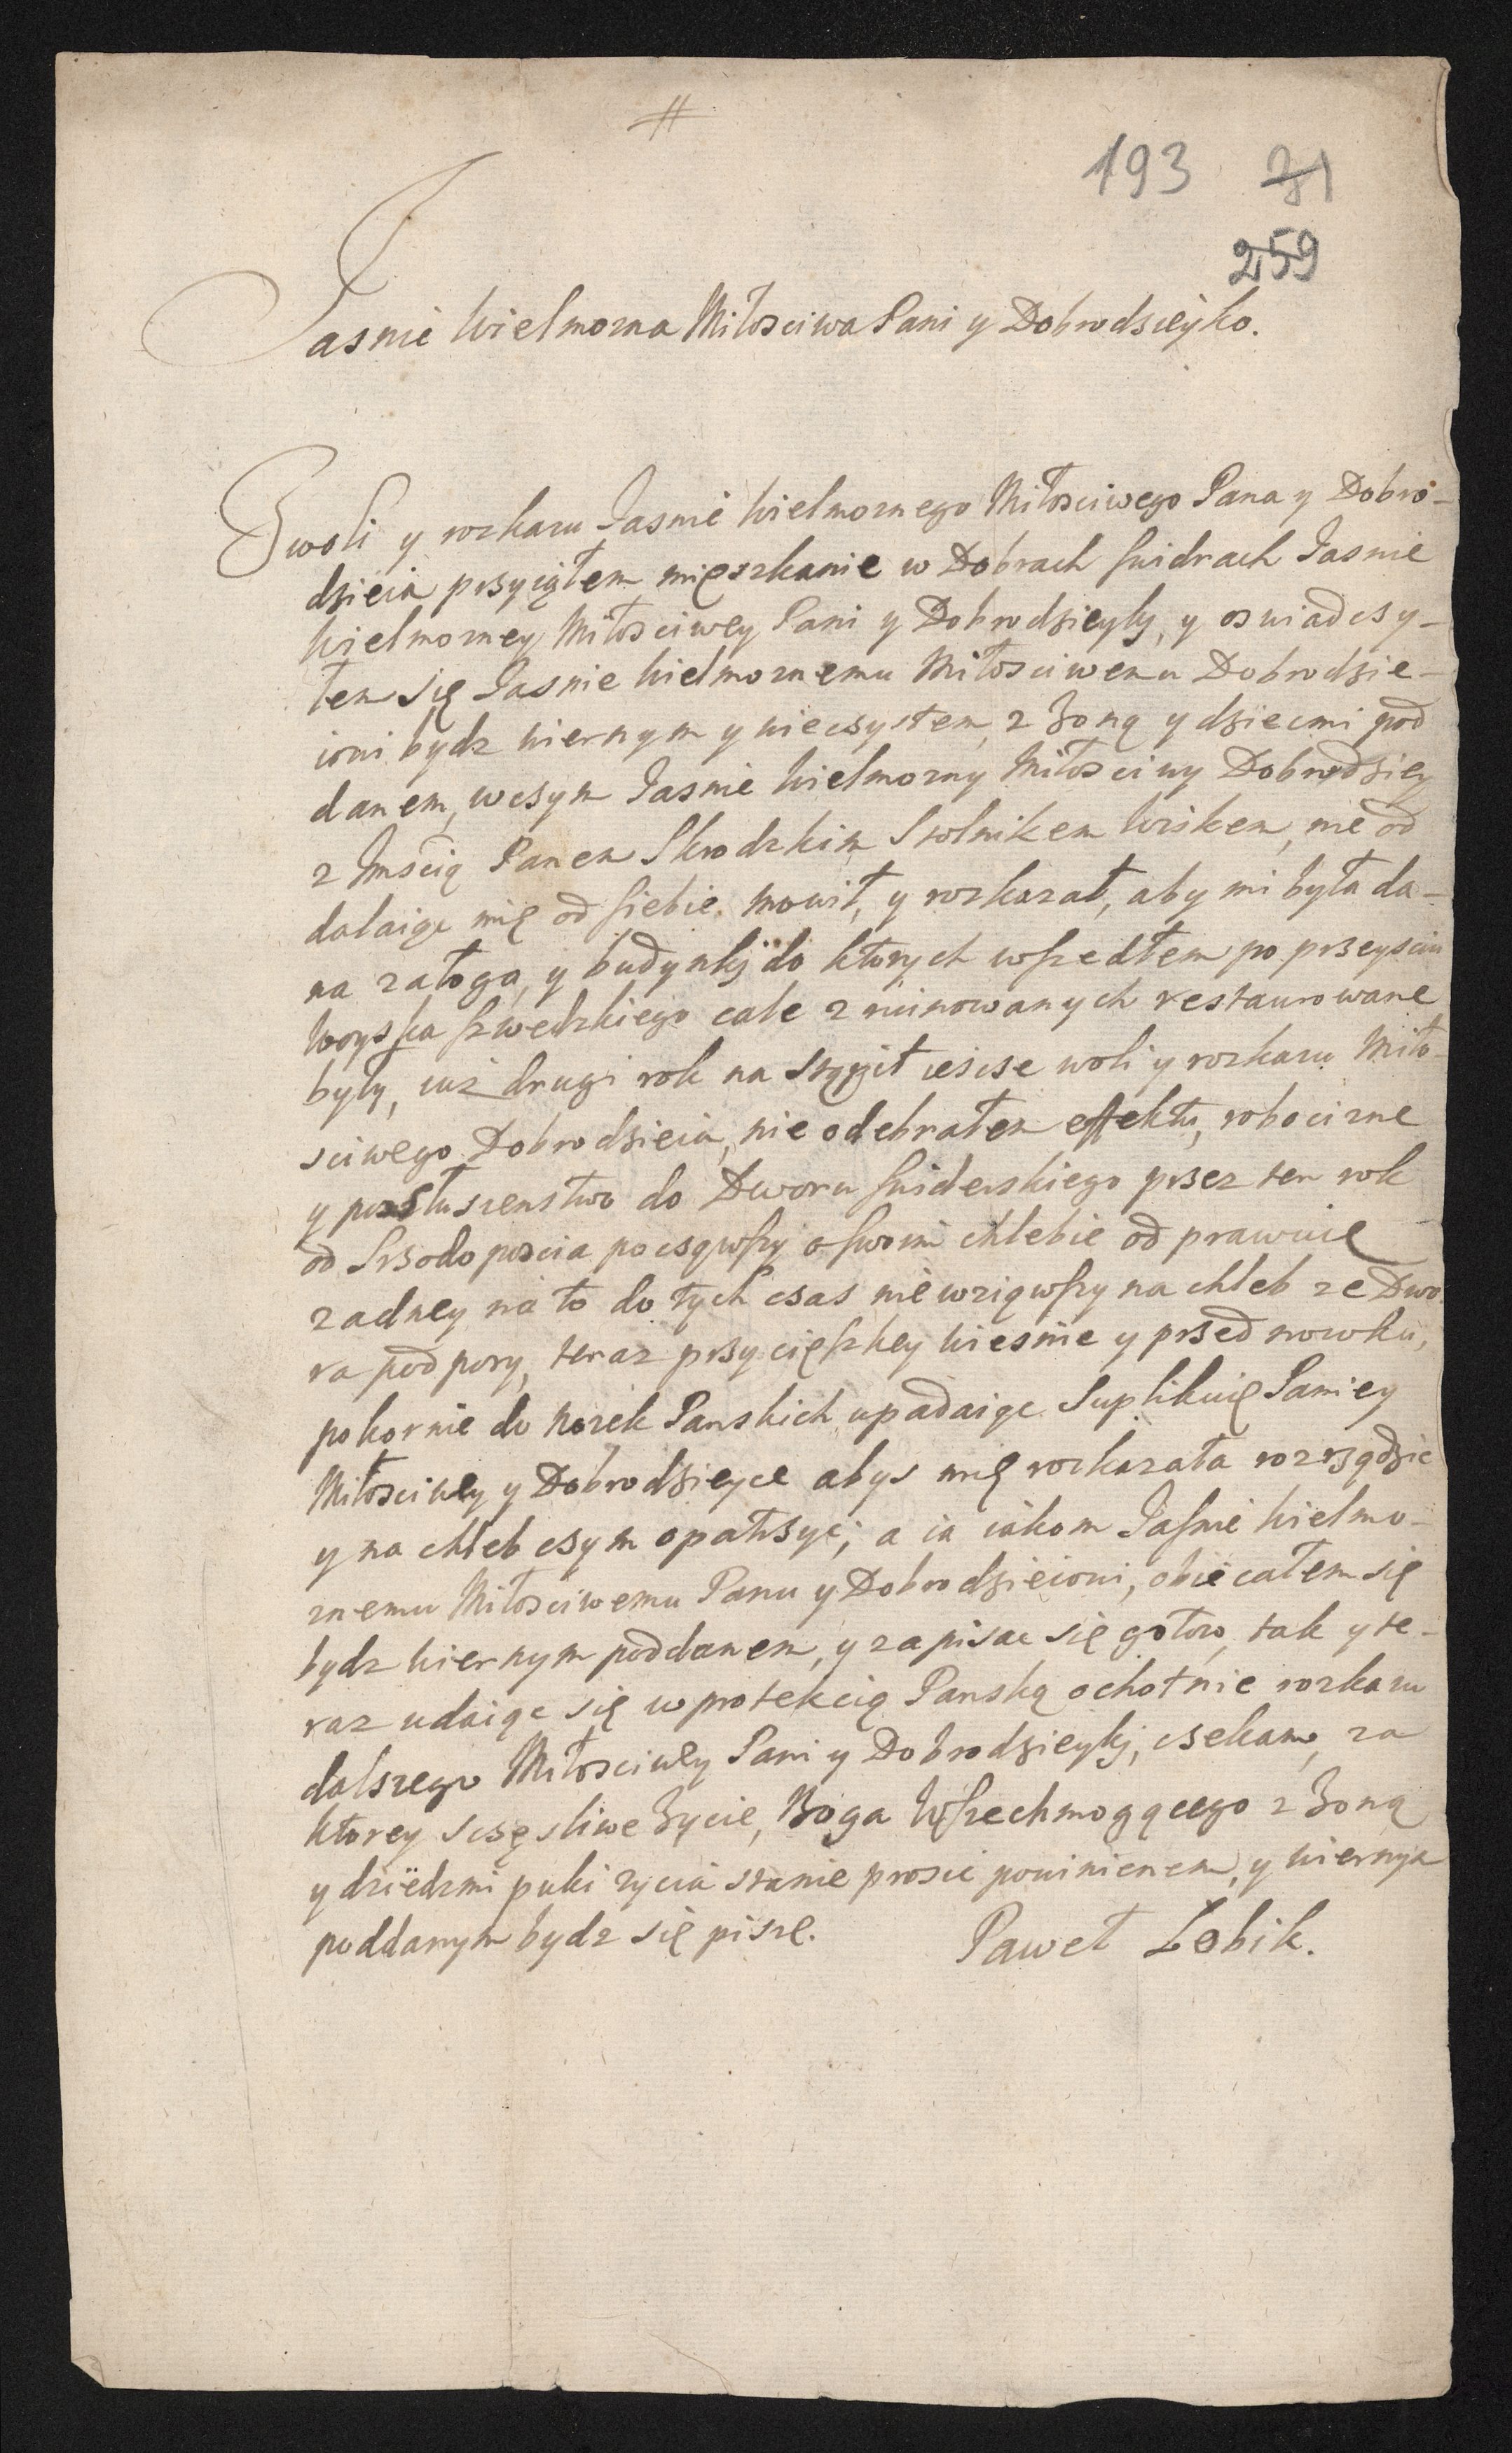 #
193 71
259
Jasnie Wielmozna Miłosciwa Pani y Dobrodzieyko.
Z woli y rozkazu Jasnie Wielmoznego Miłosciwego Pana y Dobro-
dzieia przyiąłem mięszkanie w Dobrach Swidrach Jasnie
Wielmozney Miłosciwey Pani y Dobrodzieyky, y oswiadczy-
łem się Jasnie Wielmoznemu Miłosciwemu Dobrodzie-
iowi bydz wiernym y wieczystem, z Zoną y dziecmi pod
danem, wczym Jasnie Wielmozny Miłosciwy Dobrodziey
z Imścią Panem Skrodzkim Stolnikem Wiskem, nie od
dalaiąc mię od siebie mowił, y rozkazał, aby mi była da-
na załoga, y budynkj do ktorych wszedłem po przeysciu
Woyska szwedzkiego cale zruinowanych restaurowane
były, iuz drugi rok na stąpił iescze woli y rozkazu Miło-
sciwego Dobrodzieia, nie odebrałem effektu, robocizne
y posłuszenstwo do Dworu Swiderskiego przez ten rok
od Srzodo poscia począwszy o swoim chlebie od prawuię
zadney na to do tych czas nie wziąwszy na chleb ze Dwo
ra podpory, teraz przy cięszkey wiesnie y przed nowku,
pokornie do Nozek Panskich upadaiąc Suplikuię Paniey
Miłosciwey y Dobrodzieyce abys mię rozkazała rozrządzic
y na chleb czym opatrzyc; a ia iakom Jasnie Wielmo-
znemu Miłosciwemu Panu y Dobrodzieiowi, obiecałem się
bydz wiernym poddanem, y zapisac się gotow, tak y te-
raz udaiąc się w protekcią Panską ochotnie rozkazu
dalszego Miłosciwey Pani y Dobrodzieykj, czekam, za
ktorey sczęsliwe Zycie, Boga Wszechmogącego z Zoną
y dziedzmi puki zycia stanie prosic powinienem, y wiernym
poddanym bydz się piszę. Paweł Zobik.